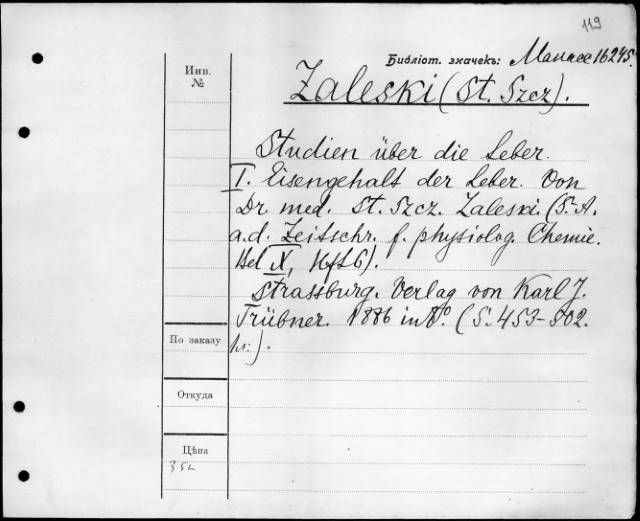 119
Библіот. значекъ: Манасс 16245.
Инв.
№
Zaleski (St. Szcz).
Studien über die Leber.
I. Eisengehalt der Leber. Von
Dr med. St. Szcz. Zaleski. (S.-A.
a.d. Zeitschr. f. physiolog. Chemie.
Bd X, Hft 6).
Strassburg. Verlag von Karl J.
Trübner. 1886 in 8º. (S. 453-502.
По заказу
Откуда
Цѣна